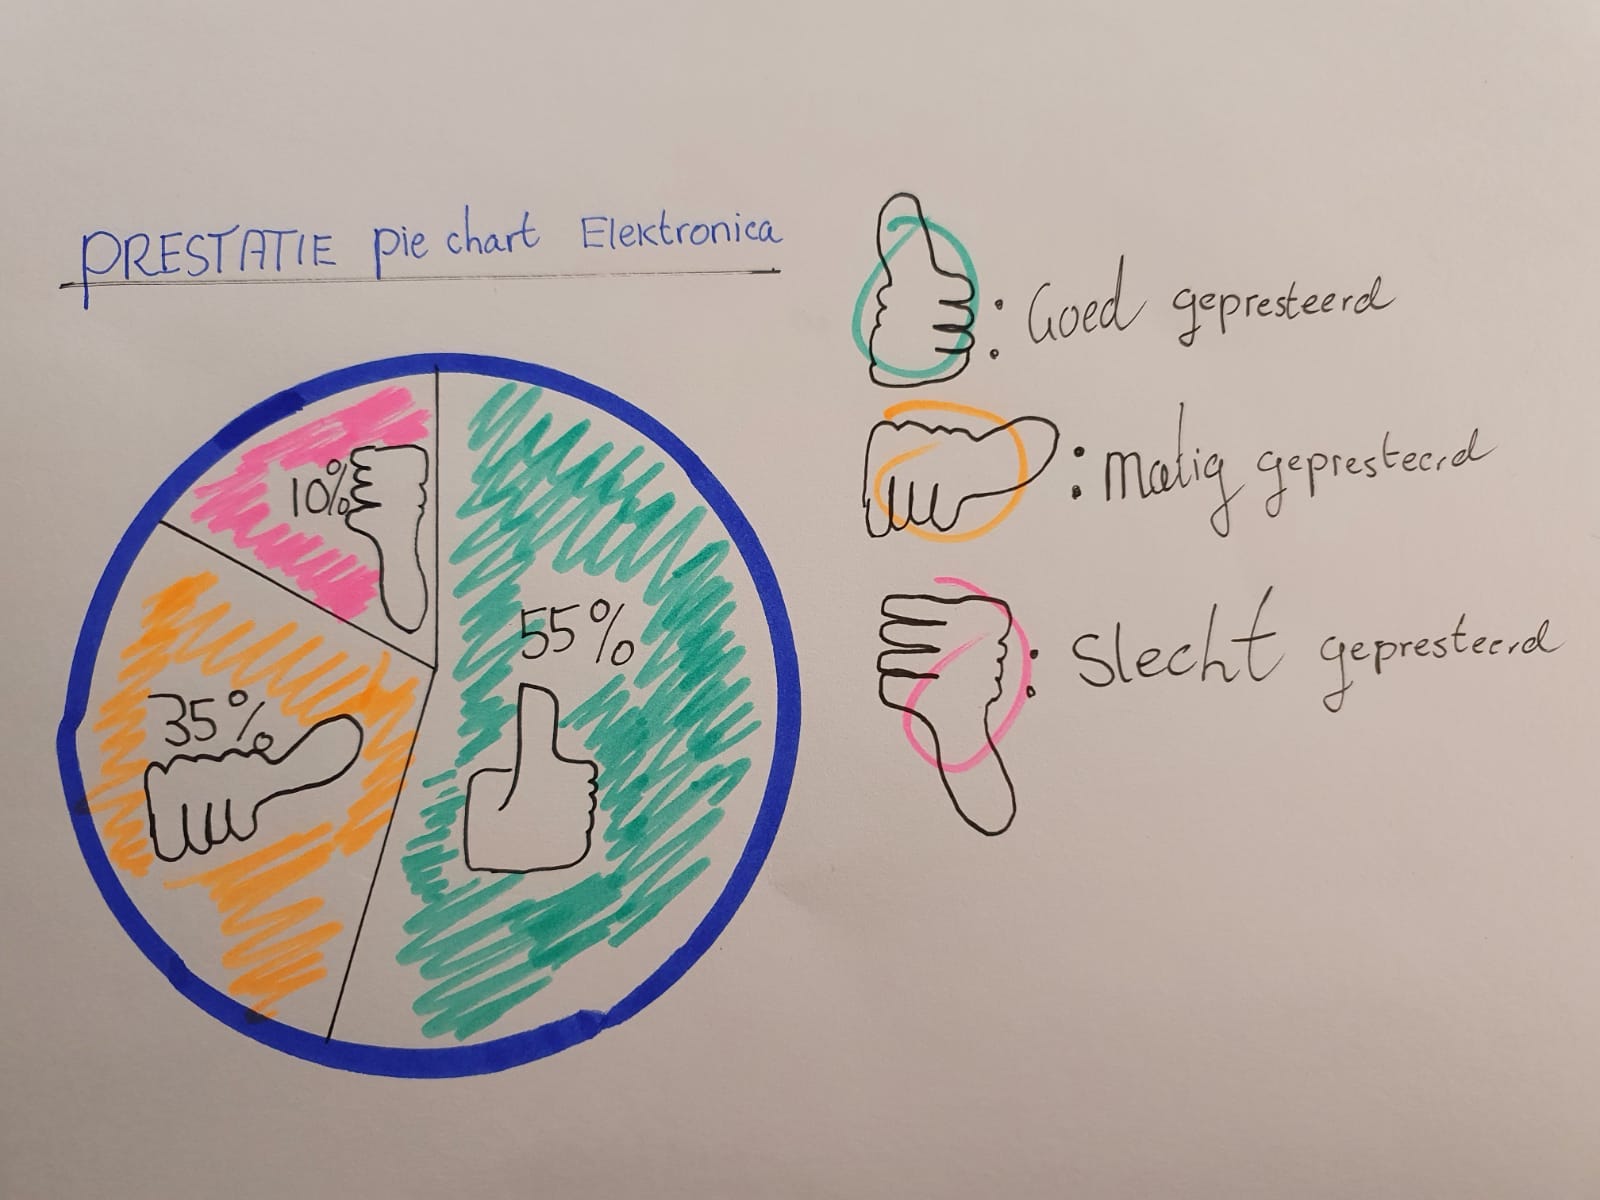 PRESTATIE pie chart Elektronica
: Goed gepresteerd
: Matig gepresteerd
: Slecht gepresteerd
10%
55%
35%